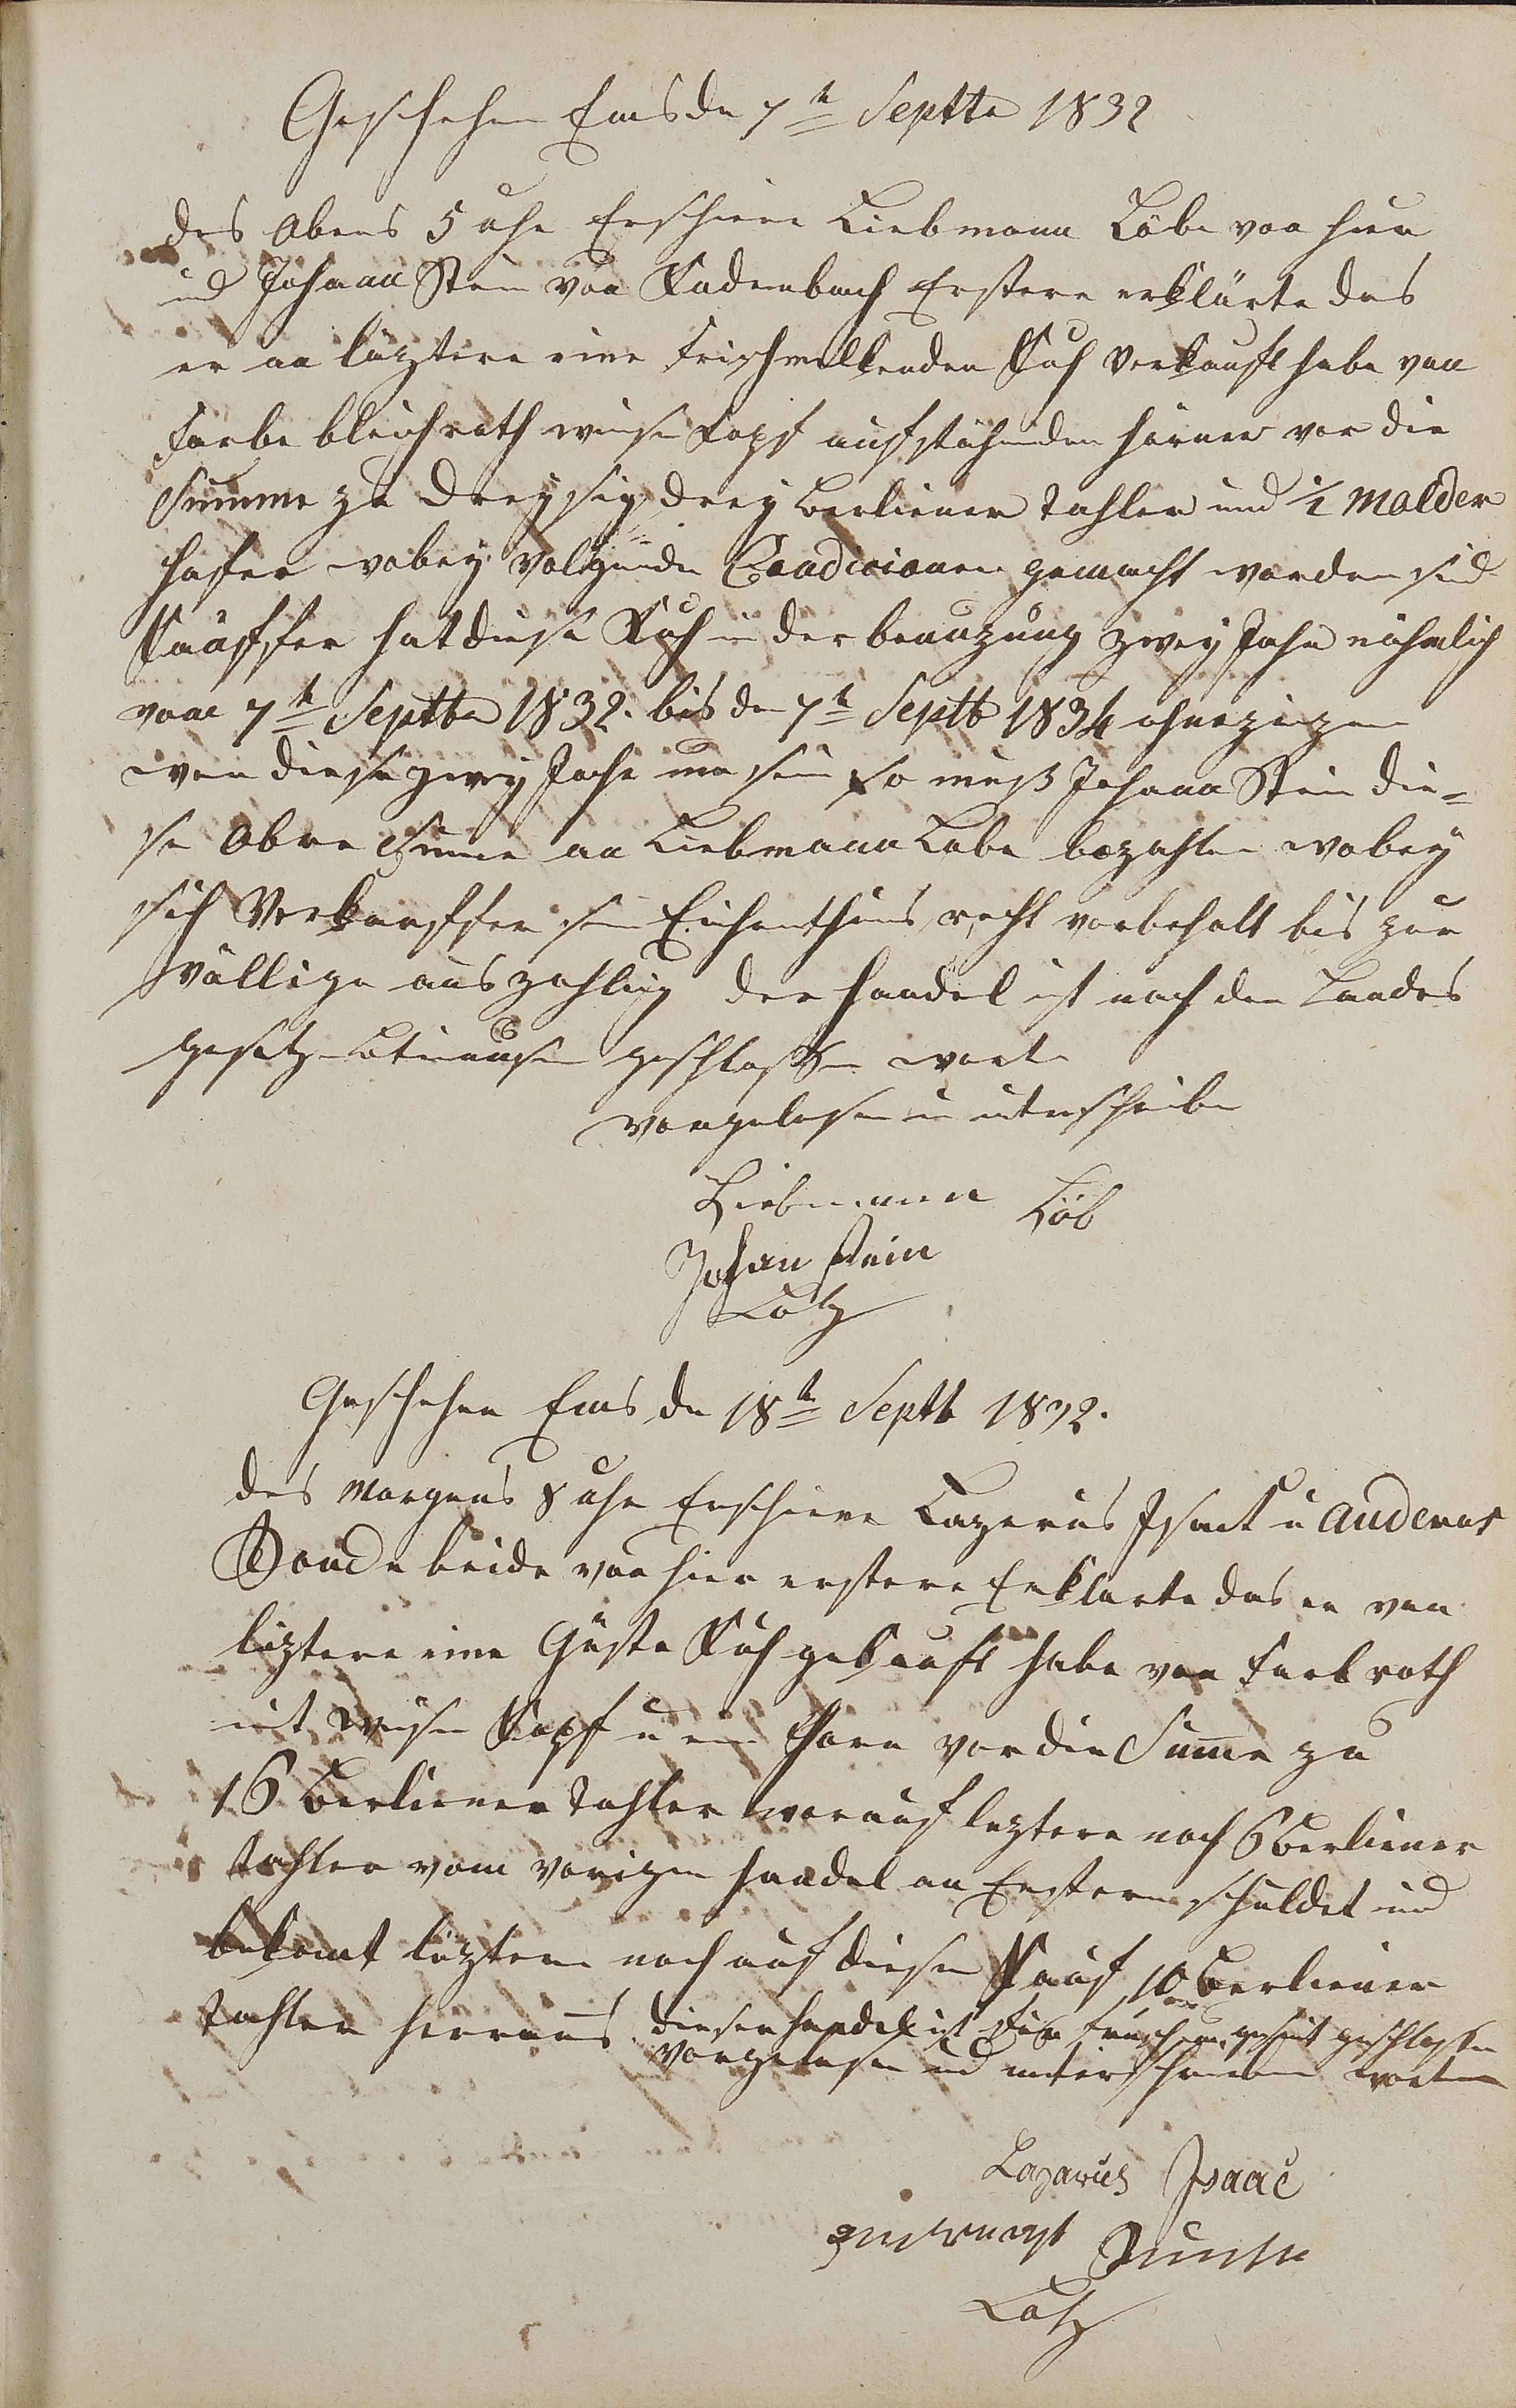 Geschehen Ems de 7t Septbr 1832
des Abens 5 uhr Erschiene Liebmann Löbe von hier
und Johann Stein von Kadenbach Erstere erklärte das
er an läztere eine frischmelkenden Kuh Verkauft habe von
Farbe bleichroth weise Kopf aufstähenden Hörner vor die
Summe zu Dreysig drey berliener tahler und 1/2 Malder
Hafer wobey volgende Condicionen gemacht worden sind
Käuffer hat diese Kuh in der benuzung zwey Jahr nähmlich
vom 7t Septbr 1832. bis de 7t Septb 1834
wen diese zwey Jahr um sein so muß Johann Stein die-
se Obere Summe an Liebmann Löbe bezahlen wobey
sich Verkauffer sein Eichenthums recht vorbehalt bis zur
völligen auszahlung der Handel ist nach den Landes
gesetz geschlossen worde
vorgelesen u unterschriben
Liebmann Löb
Johan Stein
Lotz
Geschehen Ems de 18t Septb 1832.
des Morgens 8 uhr Erschiene Lazerus Isack u
beide von hier erstere Erklarte das er von
läztere eine Güste Kuh gekauft habe von Farb roth
mit weise Kopf u ein Horn vor die Summe zu
16 berliener tahler worauf leztere noch 6 berliener
tahler vom vorigen Handel an Erstern schuldet und
bekomt läztere noch auf diesen Kauf 10 berliener
tahler heraus dieser Handel ist geschlossen
vorgelesen und unterschrieben worden
Lazarus Isaac
Lotz